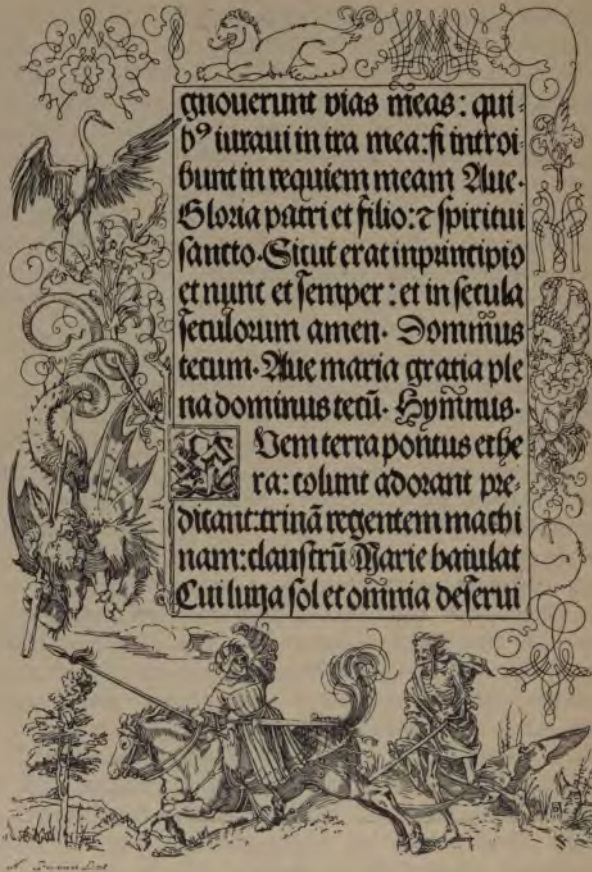 gnouerunt vias meas: qui-
bꝰ iuraui in ira mea: si introi-
bunt in requiem meam Aue.
Gloria patri et filio: ⁊ spiritui
sancto. Sicut erat in principio
et nunc et semper: et in secula
seculorum amen. Dominus
tecum. Aue maria gratia ple
na dominus tecū. Hymnus.
Vem terra pontus ethe
ra: colunt adorant pre-
dicant: trinā regentem machi
nam: claustrū Marie baiulat
Cui luna sol et omnia deserui